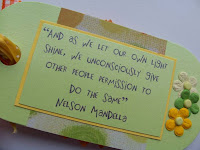 "AND AS WE LET OUR OWN LIGHT
SHINE, WE UNCONSCIOUSLY GIVE
OTHER PEOPLE PERMISSION TO
DO THE SAME"
NELSON MANDELA